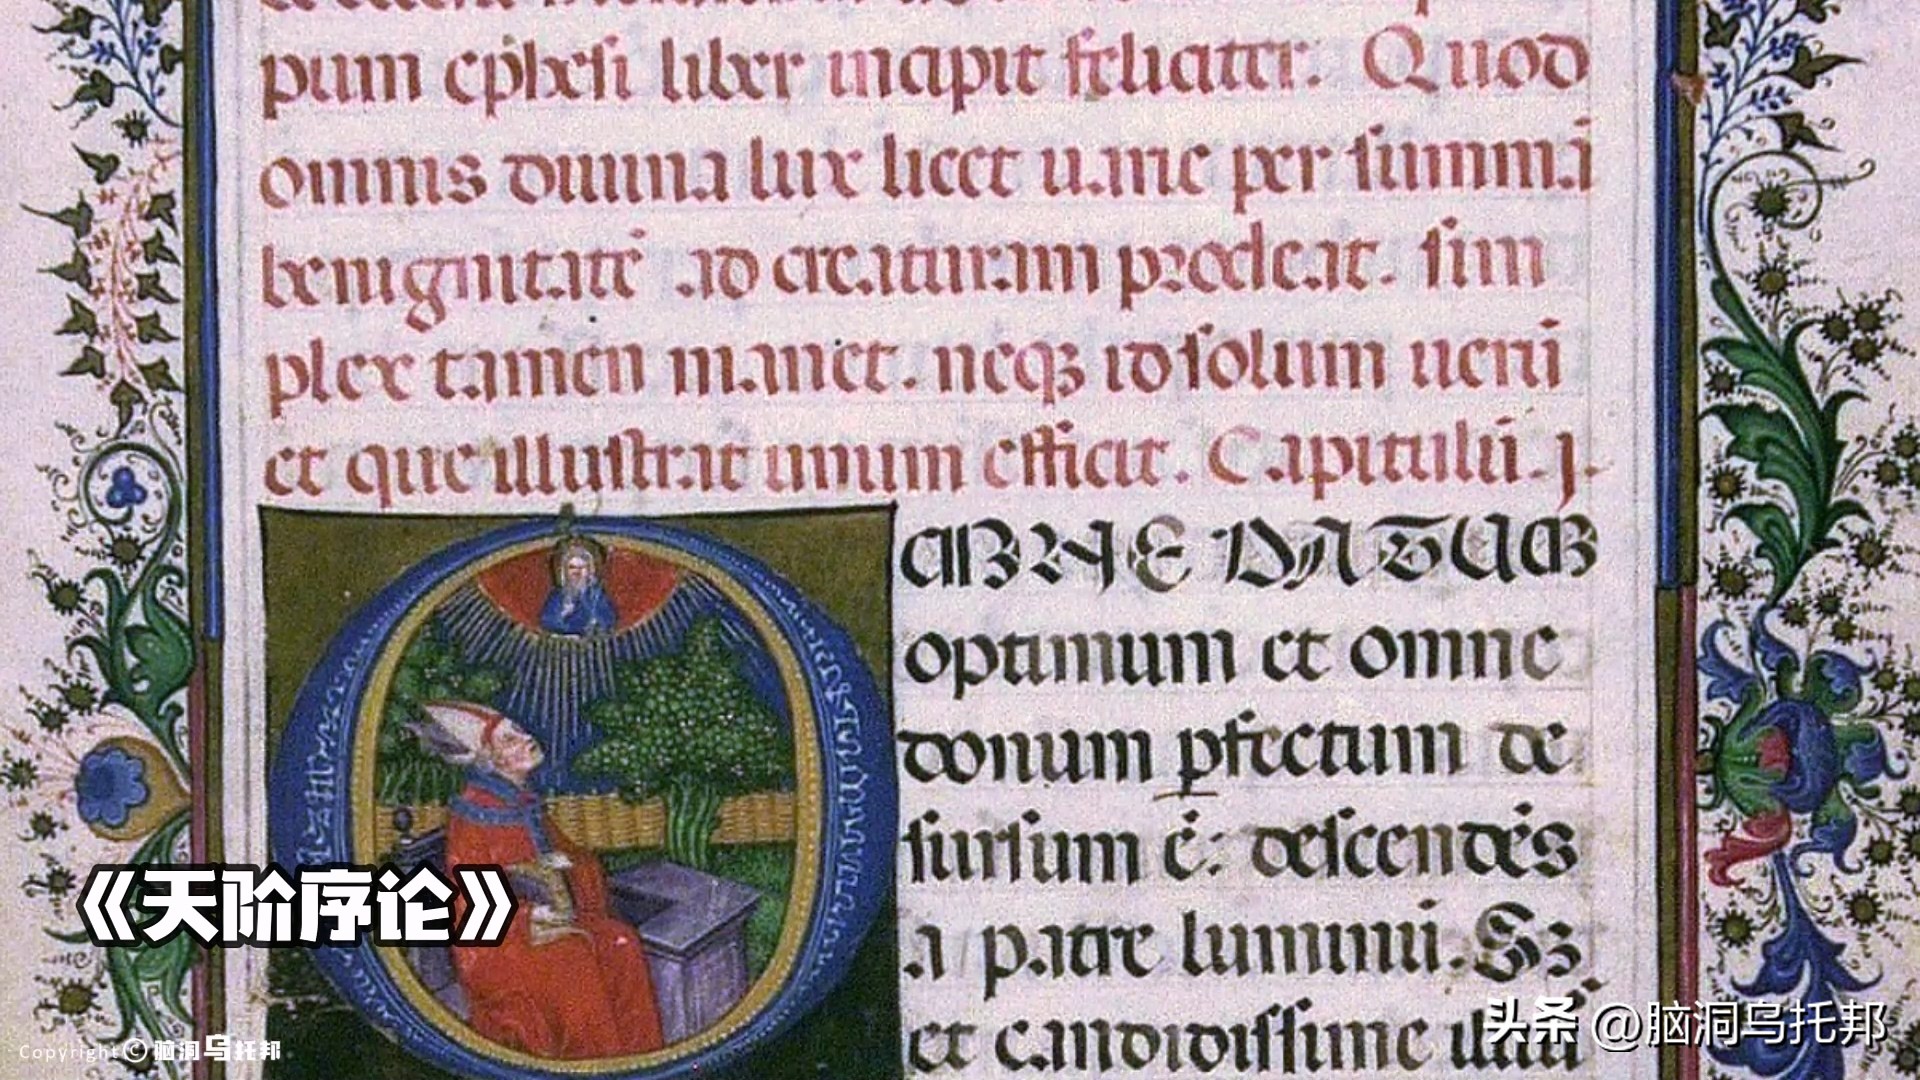 pum ephesi liber incipit feliciter. Quod
omnis diuina lux licet uarie per summā
benignitatē ad creaturam prodeat. sim
plex tamen manet. neqꝫ id solum ueri
et que illustrat unum efficit. Capitulū. j.
optimum et omne
donum ꝑfectum de
sursum ē: descendēs
a patre luminū. Sꝫ
et candidissime
《天阶序论》
Copyright © 脑洞乌托邦
头条 @脑洞乌托邦